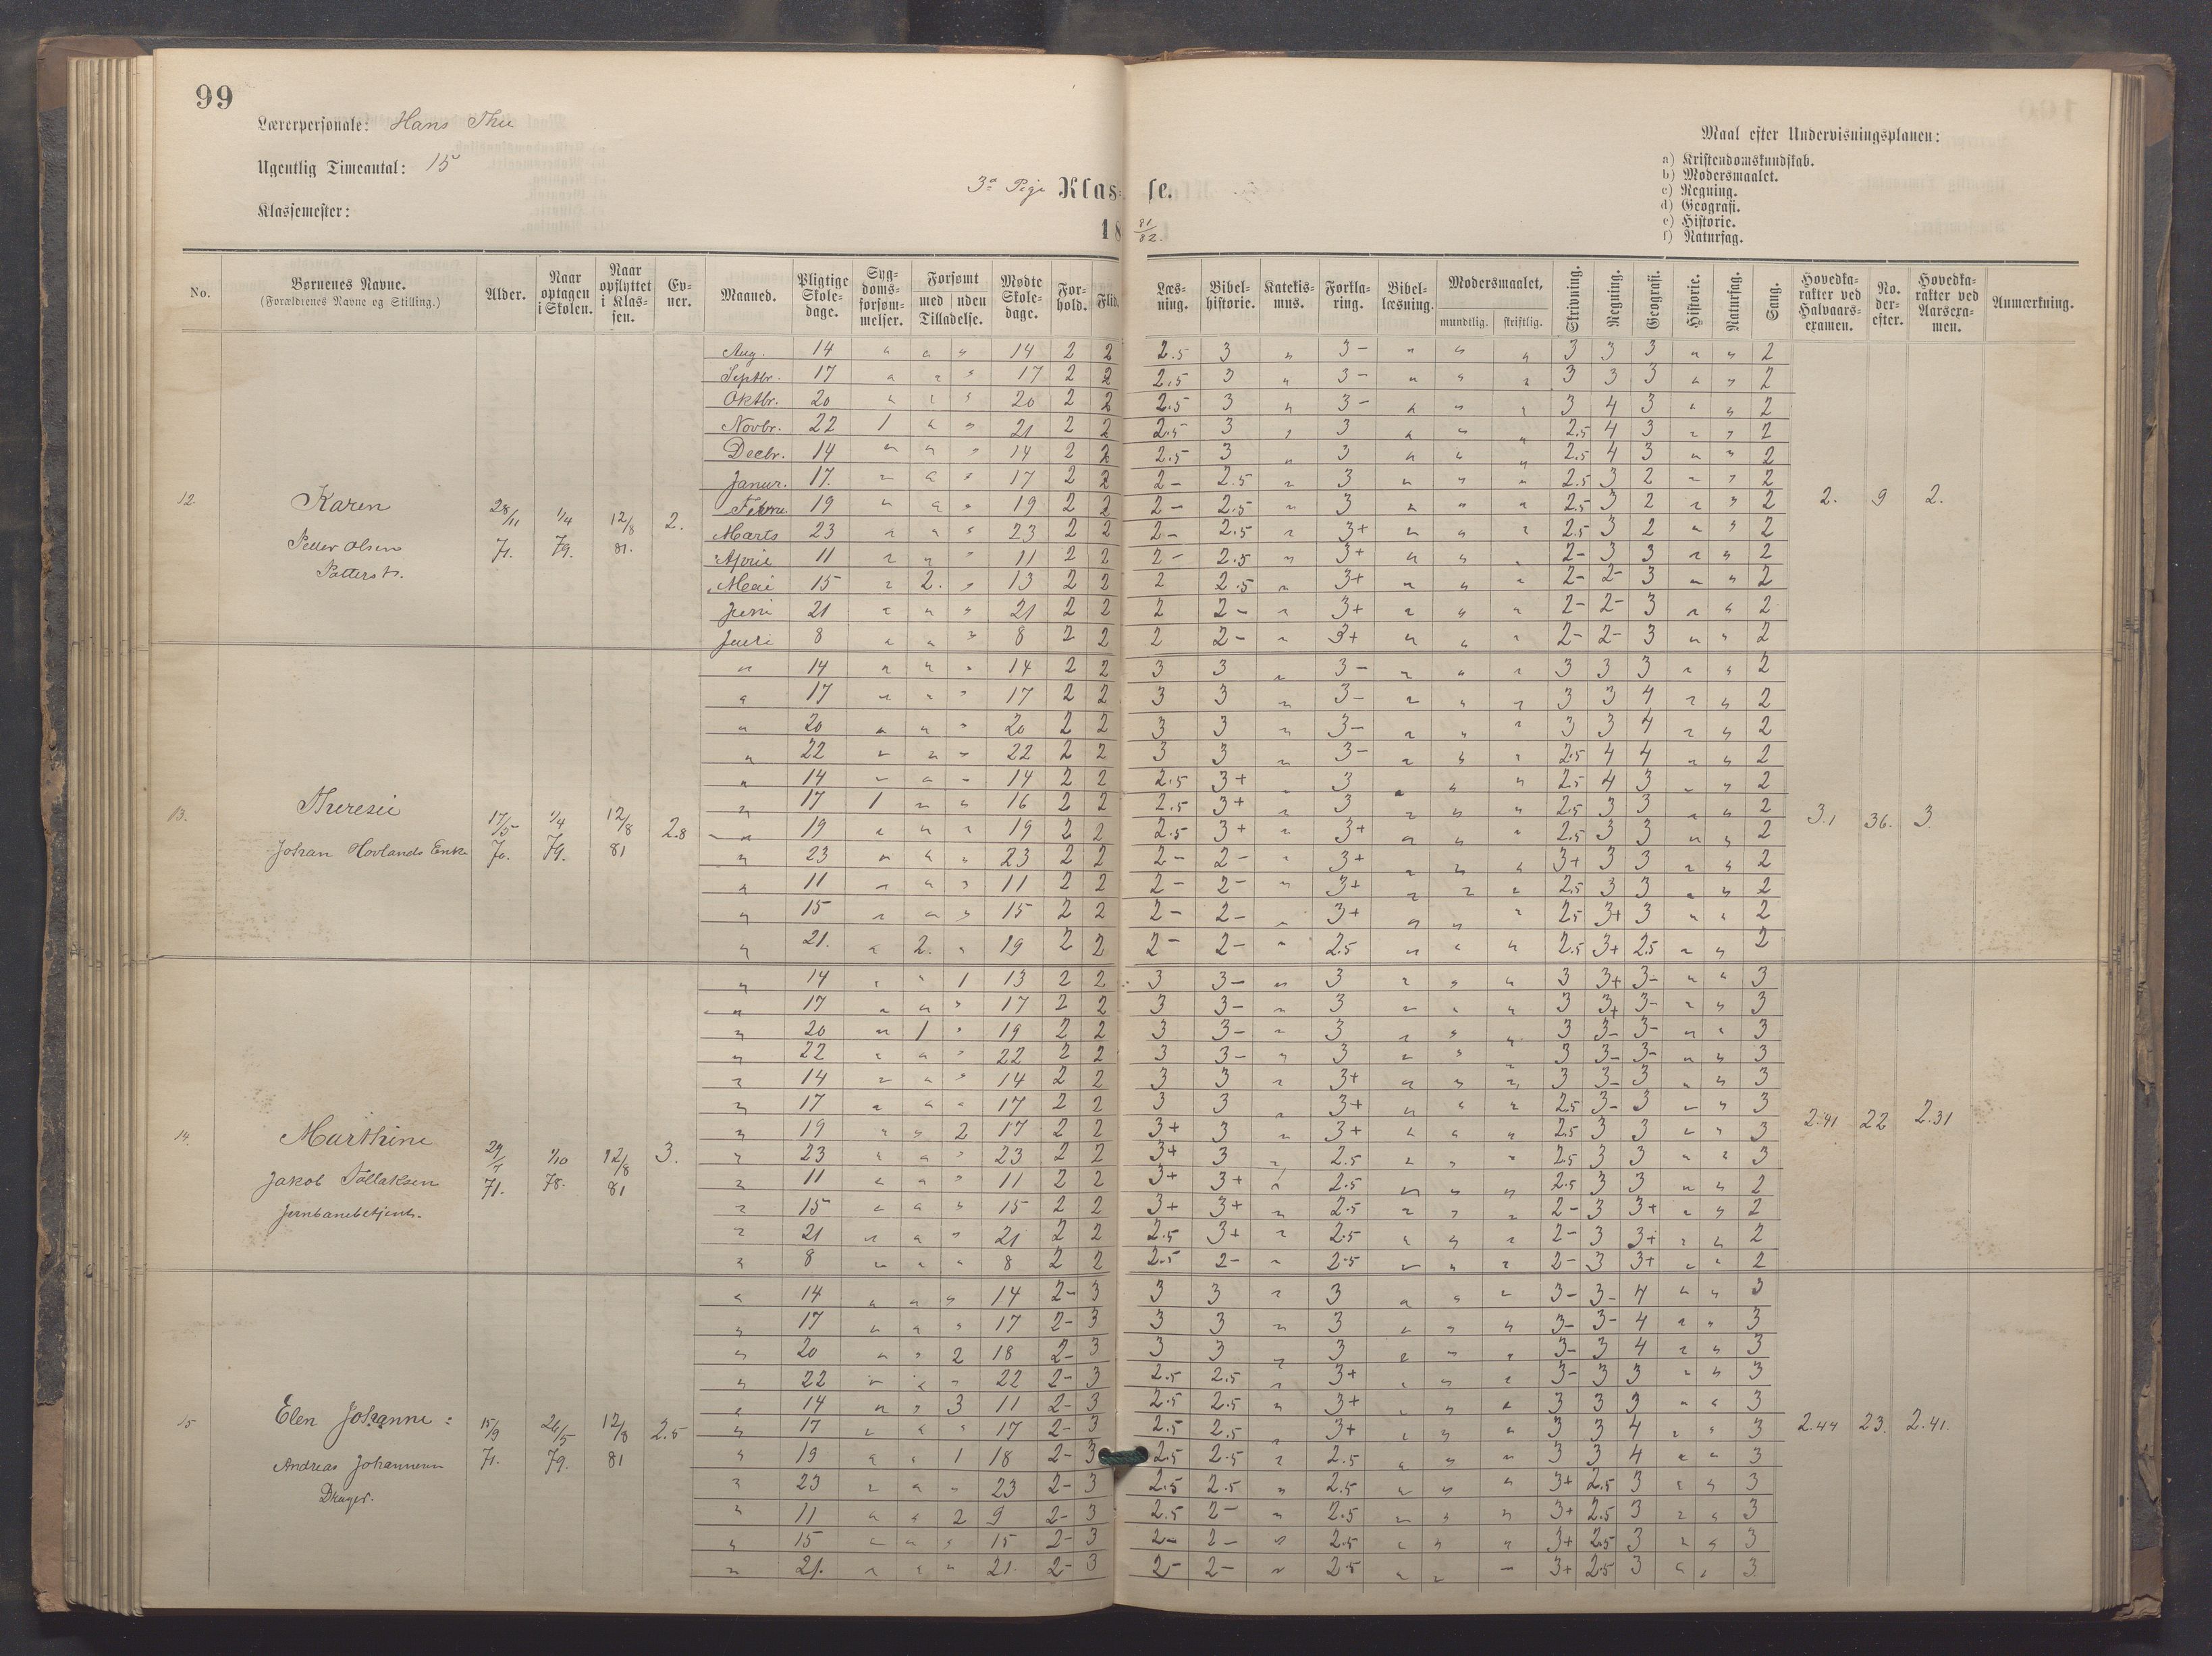 99
Lærerpersonale: Hans Thu
Ugentlig Timeantal: 15
Klassemester:
3a Pige Klasse.
18 81/82.
Maal efter Undervisningsplanen:
a) Kristendomskundskab.
b) Modersmaalet.
c) Regning.
d) Geografi.
e) Historie.
f) Naturfag.
No. Børnenes Navne. (Forældrenes Navne og Stilling.) Alder. Naar optagen i Skolen. Naar opflyttet i Klassen. Evner. Maaned. Pligtige Skoledage. Sygdomsforsømmelser. Forsømt med uden Tilladelse. Mødte Skoledage. Forhold. Flid. Læsning. Bibelhistorie. Katekismus. Forklaring. Bibellæsning. Modersmaalet, mundtlig. skriftlig. Skrivning. Regning. Geografi. Historie. Naturfag. Sang. Hovedkarakter ved Halvaarsexamen. No. derefter. Hovedkarakter ved Aarsexamen. Anmærkning.
12. Karen
Peder Olsen
28/11 71. 1/4 79. 12/8 81. 2. 2. 9 2.
Aug. 14 " " " 14 2 2 2.5 3 " 3- " " " 3 3 3 " " 2
Septbr. 17 " " " 17 2 2 2.5 3 " 3- " " " 3 3 3 " " 2
Oktbr. 20 " " " 20 2 2 2.5 3 " 3- " " " 3 4 3 " " 2
Novbr. 22 1 " " 21 2 2 2.5 3 " 3 " " " 2.5 4 3 " " 2
Decbr. 14 " " " 14 2 2 2.5 3 " 3 " " " 2.5 4 3 " " 2
Janur. 17. " " " 17 2 2 2- 2.5 " 3 " " " 2.5 3 2 " " 2
Febru 19 " " " 19 2 2 2- 2.5 " 3 " " " 2.5 3 2 " " 2
Marts 23 " " " 23 2 2 2- 2.5 " 3+ " " " 2.5 3 2 " " 2
April 11 " " " 11 2 2 2- 2.5 " 3+ " " " 2- 3 3 " " 2
Mai 15 " 2. " 13 2 2 2 2.5 " 3+ " " " 2- 2- 3 " " 2
Juni 21 " " " 21 2 2 2 2- " 3+ " " " 2- 2- 3 " " 2
Juli 8 " " " 8 2 2 2 2- " 3+ " " " 2- 2- 3 " " 2
13. Theresie
Johan Hovlands Enke
17/5 70. 1/4 79. 12/8 81 2.8 3.1 36. 3.
" 14 " " " 14 2 2 3 3 " 3- " " " 3 3 3 " " 2
" 17 " " " 17 2 2 3 3 " 3- " " " 3 3 4 " " 2
" 20 " " " 20 2 2 3 3 " 3- " " " 3 3 4 " " 2
" 22 " " " 22 2 2 3 3 " 3- " " " 2.5 4 4 " " 2
" 14 " " " 14 2 2 2.5 3+ " 3 " " " 2.5 4 3 " " 2
" 17 1 " " 16 2 2 2.5 3+ " 3 " " " 2.5 3 3 " " 2
" 19 " " " 19 2 2 2.5 3+ " 3+ " " " 2.5 3 3 " " 2
" 23 " " " 23 2 2 2- 2- " 3+ " " " 3+ 3 3 " " 2
" 11 " " " 11 2 2 2- 2- " 3+ " " " 2.5 3 3 " " 2
" 15 " " " 15 2 2 2- 2- " 3+ " " " 2.5 3+ 3 " " 2
" 21. " 2. " 19 2 2 2- 2- " 2.5 " " " 2.5 3+ 2.5 " " 2
14. Marthine
Jakob Tollaksen
Jernbanebetjent.
29/7 71. 1/10 78. 12/8 81 3. 2.41 22 2.31
" 14 " " 1 13 2 2 3 3- " 3 " " " 3 3+ 3- " " 3
" 17 " " " 17 2 2 3 3- " 3 " " " 3 3+ 3- " " 3
" 20 " 1 " 19 2 2 3 3- " 3 " " " 3 3- 3- " " 3
" 22 " " " 22 2 2 3 3- " 3 " " " 3 3- 3- " " 3
" 14 " " " 14 2 2 3 3 " 3+ " " " 3 3- 3 " " 3
" 17 " " " 17 2 2 3 3 " 3+ " " " 2.5 3- 3 " " 3
" 19 " " 2 17 2 2 3+ 3 " 3+ " " " 2.5 3 3 " " 3
" 23 " " " 23 2 2 3+ 3 " 2.5 " " " 2.5 3 3 " " 3
" 11 " " " 11 2 2 3+ 3+ " 2.5 " " " 2.5 3 3 " " 2
" 15 " " " 15 2 2 3+ 3+ " 2.5 " " " 2- 3 3+ " " 2
" 21 " " " 21 2 2 2.5 3+ " 2.5 " " " 2- 3 3+ " " 2
" 8 " " " 8 2 2 2.5 2- " 2.5 " " " 2- 3 3+ " " 2
15 Elen Johanne:
Andreas Johannesen
Drager.
15/9 71. 26/5 79. 12/8 81 2.5 2.44 23. 2.41.
" 14 " " " 14 2- 3 3 3 " 3 " " " 3- 3- 4 " " 3
" 17 " " " 17 2- 3 3 3 " 3 " " " 3- 3- 4 " " 3
" 20 " " 2 18 2- 3 3 3 " 3 " " " 3- 3 4 " " 3
" 22 " " " 22 2- 3 2.5 2.5 " 3+ " " " 3- 3 3 " " 3
" 14 " " 3 11 2- 3 2.5 2.5 " 3+ " " " 3 3 3 " " 3
" 17 " " " 17 2- 3 2.5 2.5 " 3+ " " " 3 3 4 " " 3
" 19 " " 1 18 2- 3 2.5 2.5 " 2.5 " " " 3 3 4 " " 3
" 23 " " " 23 2- 3 2.5 2.5 " 2.5 " " " 3+ 2.5 3 " " 3
" 11 " " 2 9 2- 3 2.5 2- " 2.5 " " " 3+ 2.5 3 " " 3
" 15 " " " 15 2- 3 2- 2- " 2.5 " " " 3+ 2.5 3 " " 3
" 21. " " " 21. 2- 3 2- 2- " 2.5 " " " 3+ 2.5 3 " " 3